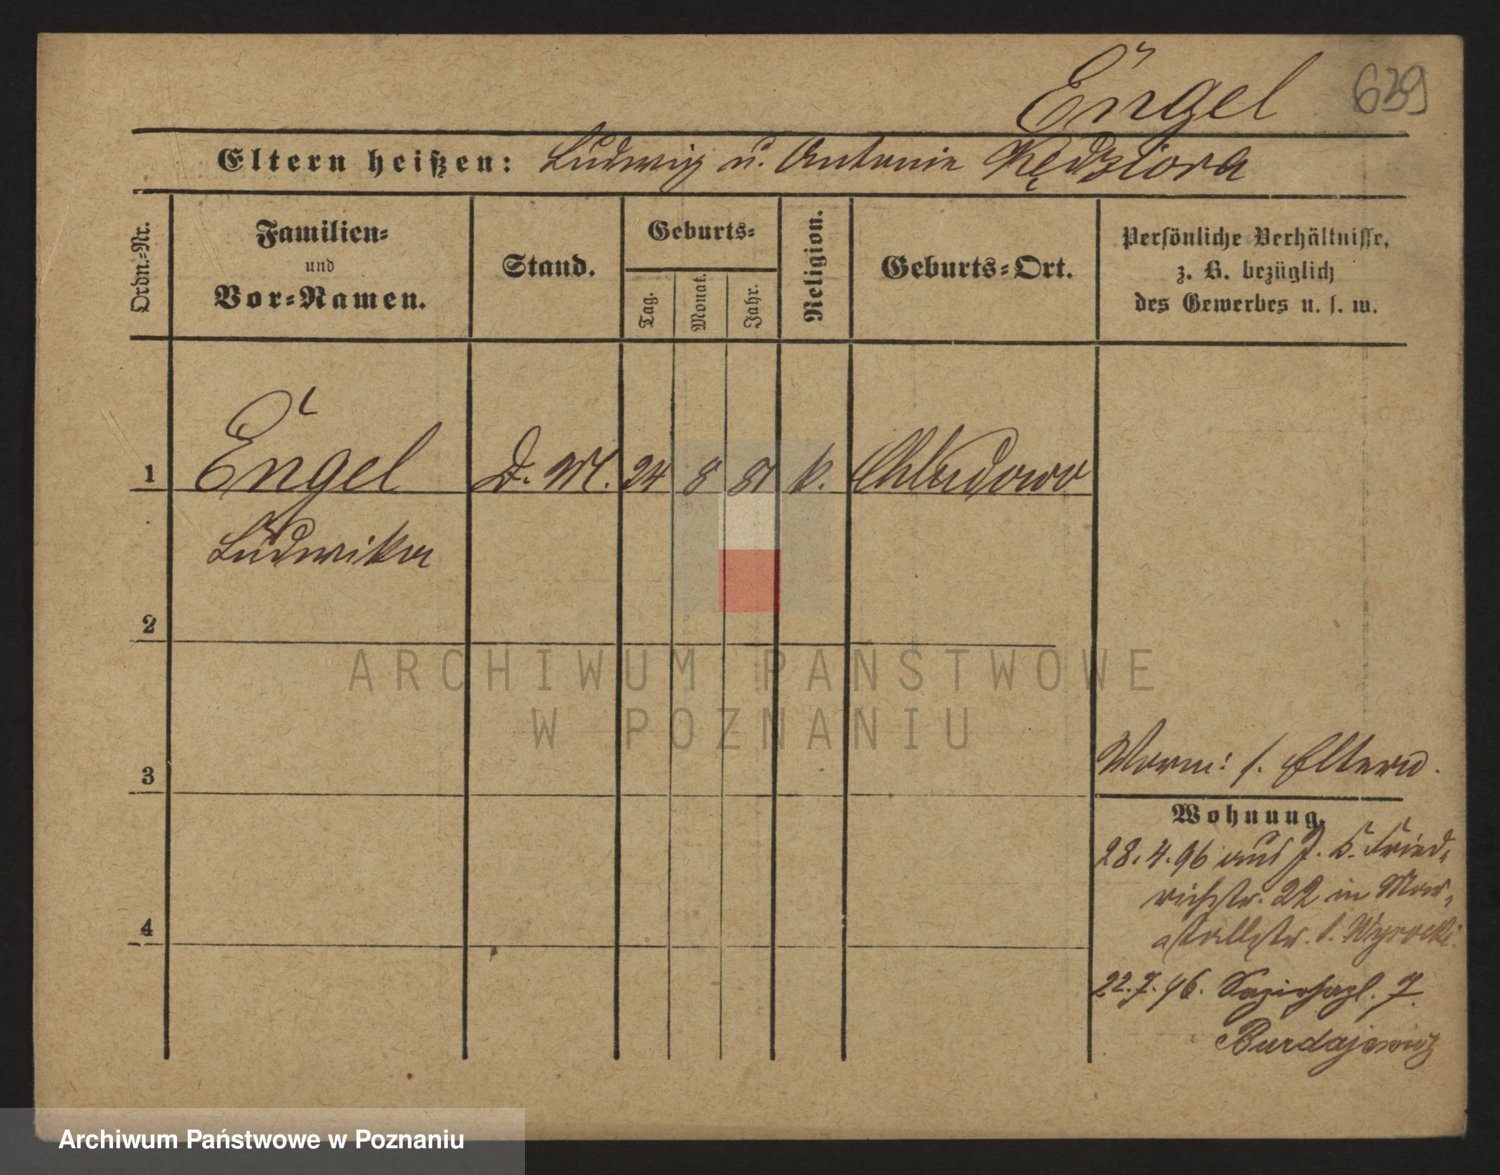 Engel 639
Eltern heißen: Ludwig u. Antonie Kędziora
Ordn.-Nr.
Familien-
und
Vor-Namen.
Stand.
Geburts-
Tag.
Monat.
Jahr.
Religion.
Geburts-Ort.
Persönliche Verhältnisse,
z. B. bezüglich
des Gewerbes u. s. w.
1 Engel D. M. 24 8 81 k. Chludowo
Ludwika
2
3
4
ARCHIWUM PAŃSTWOWE
W POZNANIU
Vorm: s. Eltern.
Wohnung.
28.4.96 aus J. b. Fried-
richstr. 22 in Mar-
stallstr. b. Wysocki.
22.7.96. 7.
Burdajewicz
Archiwum Państwowe w Poznaniu